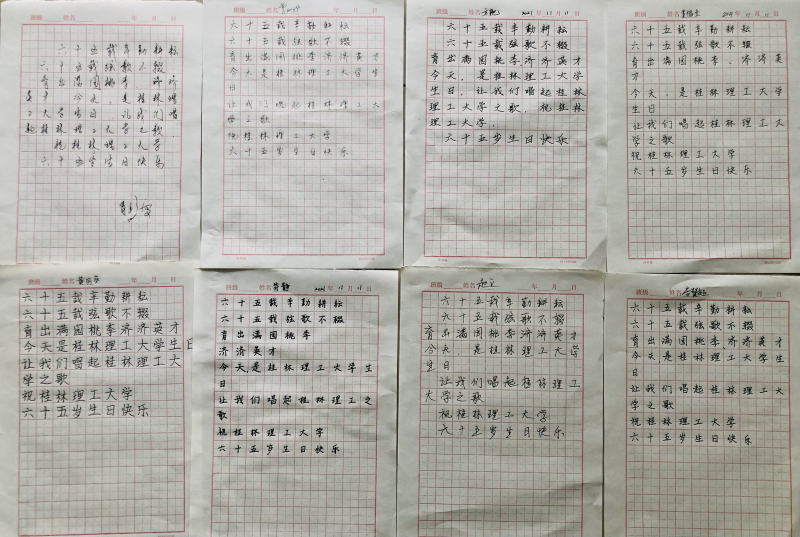 六十五载辛勤耕耘
六十五载弦歌不辍
育出满园桃李,济济
英才 今天,是桂林理
工大学生日 让我们唱
起桂林理工大学之歌,
祝桂林理工大学
六十五岁生日快乐
姓名
年 月 日
六十五载辛勤耕耘
六十五载弦歌不辍
育出满园桃李济济英才
今天是桂林理工大学生
日
让我们唱起桂林理工大
学之歌
祝桂林理工大学
六十五岁生日快乐
班级 姓名 2021 年 11 月 11 日
六十五载辛勤耕耘
六十五载弦歌不辍
育出满园桃李,济济英才
今天,是桂林理工大学
生日,让我们唱起桂林
理工大学之歌,祝桂林
理工大学,
六十五岁生日快乐
班级 姓名 年 11 月 11 日
六十五载辛勤耕耘
六十五载弦歌不辍
育出满园桃李,济济英
才
今天,是桂林理工大学
生日
让我们唱起桂林理工大
学之歌
祝桂林理工大学
六十五岁生日快乐
班级 姓名 年 月 日
六十五载辛勤耕耘
六十五载弦歌不辍
育出满园桃李济济英才
今天是桂林理工大学生日
让我们唱起桂林理工大
学之歌
祝桂林理工大学
六十五岁生日快乐
班级 姓名 2021 年 11 月 11 日
六十五载辛勤耕耘
六十五载弦歌不辍
育出满园桃李
济济英才
今天是桂林理工大学生
日
让我们唱起桂林理工之
歌
祝桂林理工大学
六十五岁生日快乐
班级 姓名 年 月 日
六十五载辛勤耕耘
六十五载弦歌不辍
育出满园桃李济济英才
今天,是桂林理工大学
生日
让我们唱起桂林理工
大学之歌
祝桂林理工大学
六十五岁生日快乐
班级 姓名 年 月 日
六十五载辛勤耕耘
六十五载弦歌不辍
育出满园桃李,济济英才
今天是桂林理工大学生
日
让我们唱起桂林理工大
学之歌
祝桂林理工大学
六十五岁生日快乐